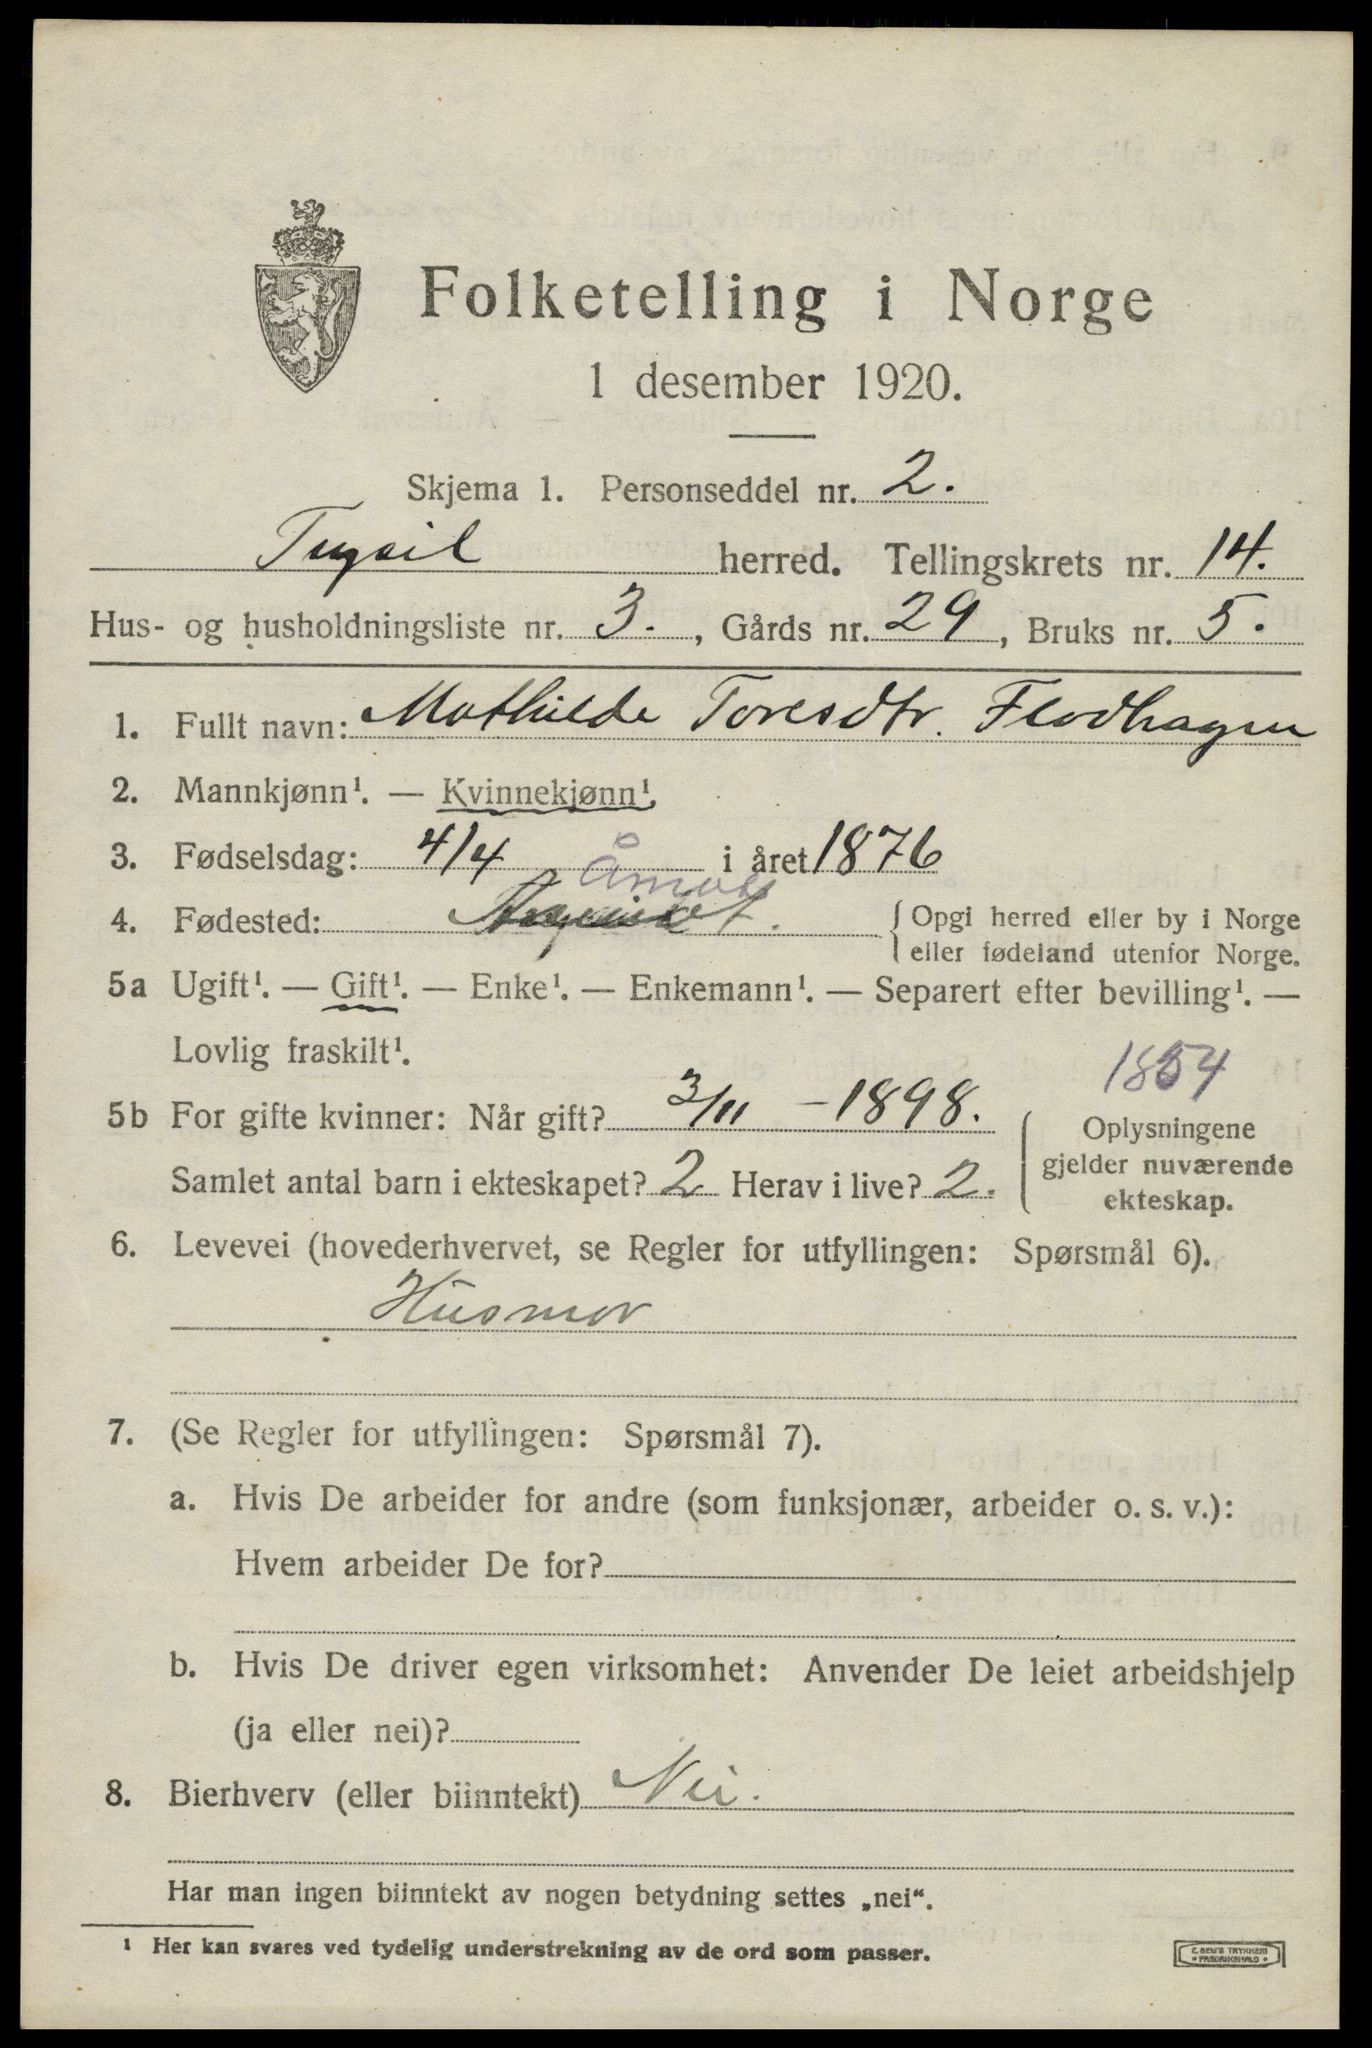 Folketelling i Norge
1 desember 1920.
Skjema 1. Personseddel nr. 2.
Trysil herred. Tellingskrets nr. 14.
Hus- og husholdningsliste nr. 3., Gårds nr. 29, Bruks nr. 5.
1. Fullt navn: Mathilde Toresdtr. Flodhagen
2. Mannkjønn¹. — Kvinnekjønn¹.
3. Fødselsdag: 4/4 i året 1876
Åmot
4. Fødested: { Opgi herred eller by i Norge
eller fødeland utenfor Norge.
5a Ugift¹. — Gift¹. — Enke¹. — Enkemann¹. — Separert efter bevilling¹. —
Lovlig fraskilt¹.
1854
5b For gifte kvinner: Når gift? 3/11 – 1898.
Samlet antal barn i ekteskapet? 2 Herav i live? 2.
Oplysningene
gjelder nuværende
ekteskap.
6. Levevei (hovederhvervet, se Regler for utfyllingen: Spørsmål 6).
Husmor
7. (Se Regler for utfyllingen: Spørsmål 7).
a. Hvis De arbeider for andre (som funksjonær, arbeider o. s. v.):
Hvem arbeider De for?
b. Hvis De driver egen virksomhet: Anvender De leiet arbeidshjelp
(ja eller nei)?
8. Bierhverv (eller biinntekt) Nei.
Har man ingen biinntekt av nogen betydning settes „nei“.
¹ Her kan svares ved tydelig understrekning av de ord som passer.
E. SEM'S TRYKKERI
• FREDRIKSHALD •